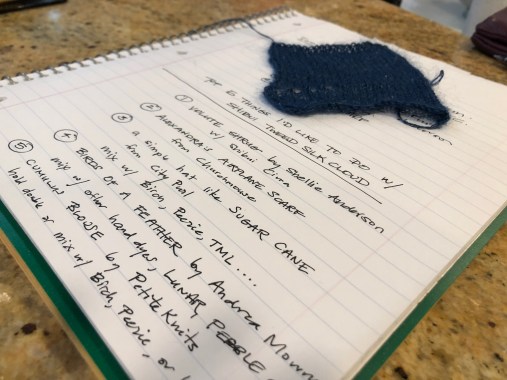 TOP 5 THINGS I'D LIKE TO DO w/
SHIBUI TWEED SILK CLOUD
① VOLUTE SHRUG by Shellie Anderson
w/ Shibui
② ALEXANDRA'S AIRPLANE SCARF
from Churchmouse
③ a simple hat like SUGAR CANE
from City Purl
mix w/ Birch, Pebble, TML....
④ BIRDS OF A FEATHER by Andrea Mowry
mix w/ other handdyes, LUNAR, PEBBLE
⑤ CUMULUS BLOUSE by Petite Knits
hold double or mix w/ Birch, Pebble, or